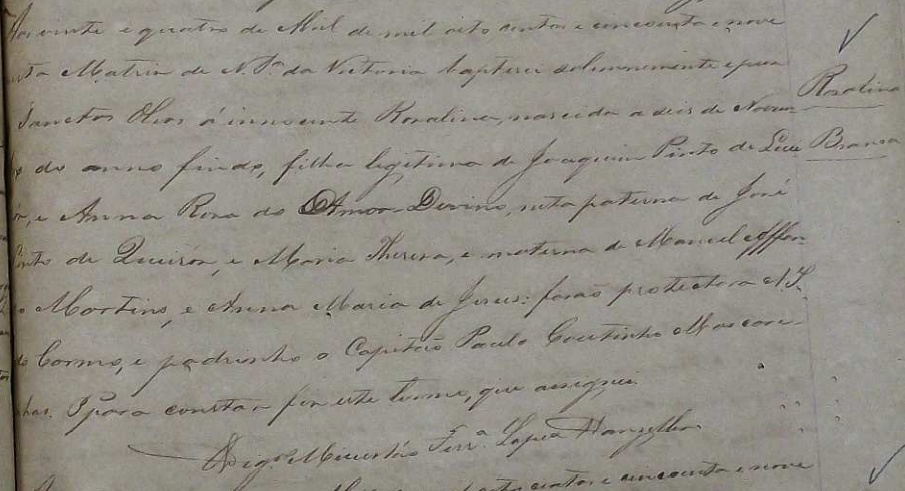 Aos vinte e quatro de Abril de mil oito centos e cincoenta e nove
nesta Matriz de N. Sª da Victoria baptizei solemnemente e puz os
Sanctos Oleos á innocente Rosalina, nascida a seis de Novem- Rosalina
bro do anno findo, filha legitima de Joaquim Pinto de Quei- Branca
roz, e Anna Rosa do Amor Divino, neta paterna de José
Pinto de Queiroz, e Maria Thereza, e materna de Manoel Affon-
so Martins, e Anna Maria de Jesus: forão protectora N. S.
do Carmo, e padrinho o Capitão Paulo Coutinho Mascare-
nhas. E para constar fiz este termo, que assignei.
O Vigº Ferrª Lopes
centos e cincoenta e nove